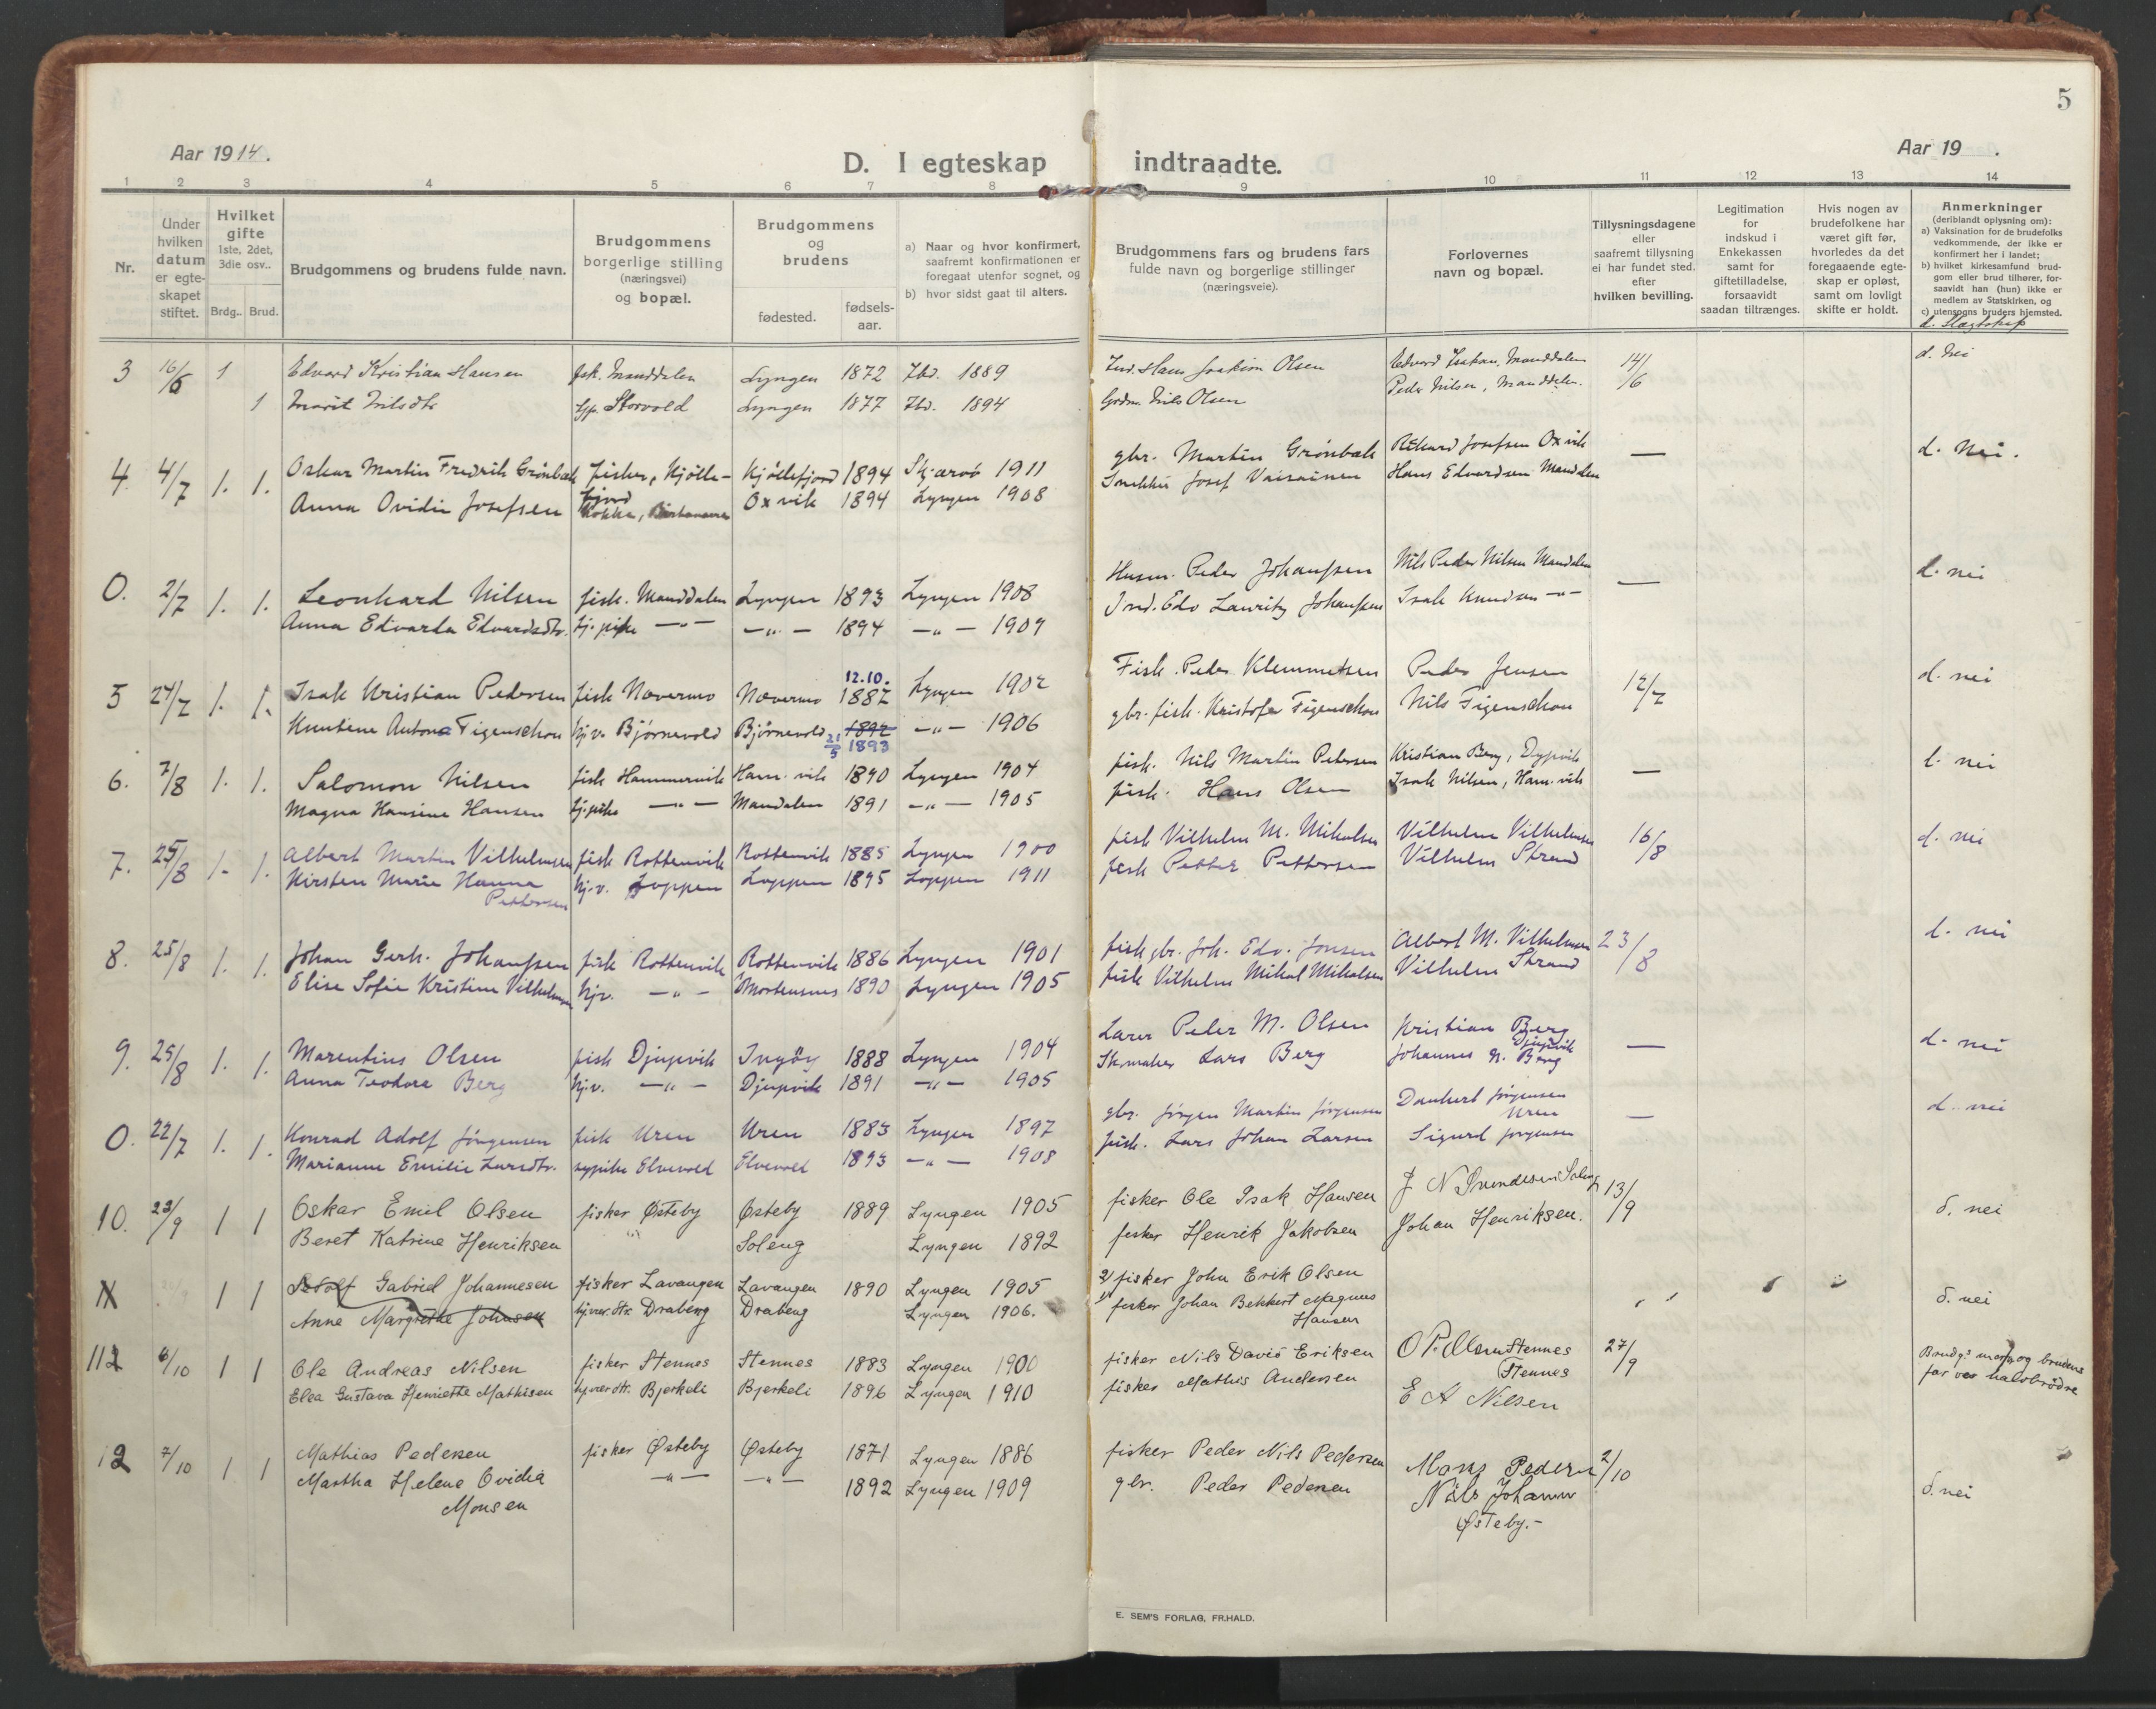 5
Aar 1914. D. I egteskap indtraadte. Aar 19 .
1 2 3 4 5 6 7 8 9 10 11 12 13 14
Nr.
Under
hvilken
datum
er egte-
skapet
stiftet.
Hvilket
gifte
1ste, 2det,
3die osv..
Brdg.. Brud.
Brudgommens og brudens fulde navn.
Brudgommens
borgerlige stilling
(næringsvei)
og bopæl.
Brudgommens
og
brudens
fødested.
fødsels-
aar.
a) Naar og hvor konfirmert,
saafremt konfirmationen er
foregaat utenfor sognet, og
b) hvor sidst gaat til alters.
Brudgommens fars og brudens fars
fulde navn og borgerlige stillinger
(næringsveie).
Forlovernes
navn og bopæl.
Tillysningsdagene
eller
saafremt tillysning
ei har fundet sted.
efter
hvilken bevilling.
Legitimation
for
indskud i
Enkekassen
samt for
giftetilladelse,
forsaavidt
saadan tiltrænges.
Hvis nogen av
brudefolkene har
været gift før,
hvorledes da det
foregaaende egte-
skap er opløst,
samt om lovligt
skifte er holdt.
Anmerkninger
(deriblandt oplysning om):
a) Vaksination for de brudefolks
vedkommende, der ikke er
konfirmert her i landet;
b) hvilket kirkesamfund brud-
gom eller brud tilhører, for-
saavidt han (hun) ikke er
medlem av Statskirken, og
c) utensogns bruders hjemsted.
d. Slægtskap
3 16/6 1 Edvard Kristian Hansen fisk. Manddalen Lyngen 1872 1889 Hans Joakim Olsen Edvard Isaksen, Manddalen 14/6 d. Nei
1 Marit Nilsdtr Storvold Lyngen 1877 1894 Nils Olsen Peder Nilsen, Manddalen.
4. 4/7 1. 1. Oskar Martin Fredrik Grönbæk fisker, Kjölle- Kjöllefjord 1894 Skjærvö 1911 gbr. Martin Grönbæk Rikard Josefsen Oxvik — d. Nei.
fjord
Anna Ovidie Josefsen Kokke, Oxvik 1894 Lyngen 1908 Josef Vaisainen Hans Edvardsen Mandalen
0. 2/7 1. 1. Leonhard Nilsen fisk. Manddalen Lyngen 1893 Lyngen 1908 Husm. Peder Johanssen Nils Peder Nilsen Mandalen — d. nei
Anna Edvarda Edvardsdtr. tj. pike —"— —"— 1894 —"— 1909 Ind. Edv Lauritz Johanssen Isak Knudsen —"—
5 24/7 1. 1. Isak Kristian Pedersen fisk Nævermo Nævermo 12.10. 1882 Lyngen 1902 Fisk. Peder Klemmetsen Peder Jensen 12/7 d. nei
Kuntene Antona Figenschou hj.v. Björnevold Björnevold 1892 21/5 1893 —"— 1906 gbr. fisk. Kristofer Figenschou Nils Figenschou
6. 7/8 1. 1. Salomon Nilsen fisk Hammervik Ham. vik 1890 Lyngen 1904 fisk. Nils Martin Petersen Kristian Berg, Dypvik — d. nei
Magna Hansine Hansen tj.pike —"— Mandalen 1891 —"— 1905 fisk. Hans Olsen Isak Nilsen, Ham. vik
7. 25/8 1. 1. Albert Martin Vilhelmsen fisk Rottenvik Rottenvik 1885 Lyngen 1900 fisk Vilhelm M. Mikalsen Vilhelm Vilhelmsen 16/8 d. nei
Kirsten Marie Hanna hj.v. Loppen Loppen 1895 Loppen 1911 fisk Petter Pettersen Vilhelm Strand
Pettersen
8. 25/8 1. 1. Johan Gerh. Johanssen fisk Rottenvik Rottenvik 1886 Lyngen 1901 fisk gbr. Joh. Edv. Jonsen Albert M. Vilhelmsen 23/8 d. nei
Elise Sofie Kristine Vilhelmsen hjv. —"— Mortensnes 1890 Lyngen 1905 fisk Vilhelm Mikal Mikalsen Vilhelm Strand
9. 25/8 1. 1. Marentius Olsen fisk Djupvik Ingöy 1888 Lyngen 1904 Lærer Peder M. Olsen Kristian Berg — d. nei
Djupvik
Anna Teodora Berg hjv. —"— Djupvik 1891 —"— 1905 Skomaker Lars Berg Johannes N. Berg
0. 22/7 1. 1. Konrad Adolf Jörgensen fisk Uren Uren 1883 Lyngen 1897 gbr. Jörgen Martin Jörgensen Dankert Jörgensen — d. nei
Uren
Marianne Emilie Larsdtr. sypike Elvevold Elvevold 1893 —"— 1908 fisk. Lars Johan Larsen Sigurd Jörgensen
10. 23/9 1 1 Oskar Emil Olsen fisker Østeby Østeby 1889 Lyngen 1905 fisker Ole Isak Hansen J N Svendsen Soleng 13/9 d. nei
Beret Katrine Henriksen Soleng Lyngen 1892 fisker Henrik Jakobsen Johan Henriksen.
11 1 1 Gabriel Johannesen fisker Lavangen Lavangen 1890 Lyngen 1905 2) fisker John Erik Olsen d. nei
Anne Margrethe Johnsen hjvær. dtr. Drabeng Drabeng Lyngen 1906. 1) fisker Johan Bekkert Magnus
Hansen
112 6/10 1 1 Ole Andreas Nilsen fisker Stennes Stennes 1883 Lyngen 1900 fisker Nils David Eriksen O P. Olsen Stennes 27/9 Brudg.s mor og brudens
Stennes far var halvbrödre
Elea Gustava Henriette Mathisen hjvær dtr. Bjerkeli Bjerkeli 1896 Lyngen 1910 fisker Mathis Andersen E A Nilsen
12 7/10 1 1 Mathias Pedersen fisker Østeby Østeby 1871 Lyngen 1886 fisker Peder Nils Pedersen Mons Pedersen 2/10
Martha Helene Ovidia —"— —"— 1892 Lyngen 1909 gbr. Peder Pedersen Nils Johansen d. nei
Monsen Østeby.-
E. SEM'S FORLAG, FR.HALD.